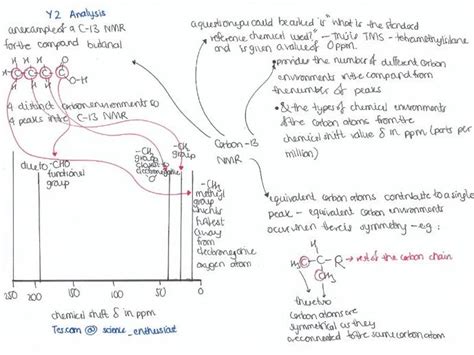 Y2 Analysis
an example of a C-13 NMR
for the compound butanal
H H H
H C C C C O-H
H H H
4 distinct carbon environments so
4 peaks in the C-13 NMR
a question you could be asked is "what is the standard
reference chemical used?" - This is TMS - tetramethylsilane
and is given a value of 0 ppm.
• provides the number of different carbon
environments in the compound from
the number of peaks
• & the types of chemical environments
of the carbon atoms from the
chemical shift value δ in ppm (parts per
million)
Carbon-13
NMR
due to -CHO
functional
group
-CH2
group
closest to
electronegative
O
-CH2
group
-CH3
methyl
group
which is
furthest
away
from
electronegative
oxygen atom
250 200 150 100 50 0
chemical shift δ in ppm
Tes.com @ science_enthusiast
equivalent carbon atoms contribute to a single
peak - equivalent carbon environments
occur when there is symmetry - e.g:
H
H C - C - R → rest of the carbon chain
CH3
these two
carbon atoms are
symmetrical as they
are connected to the same carbon atom